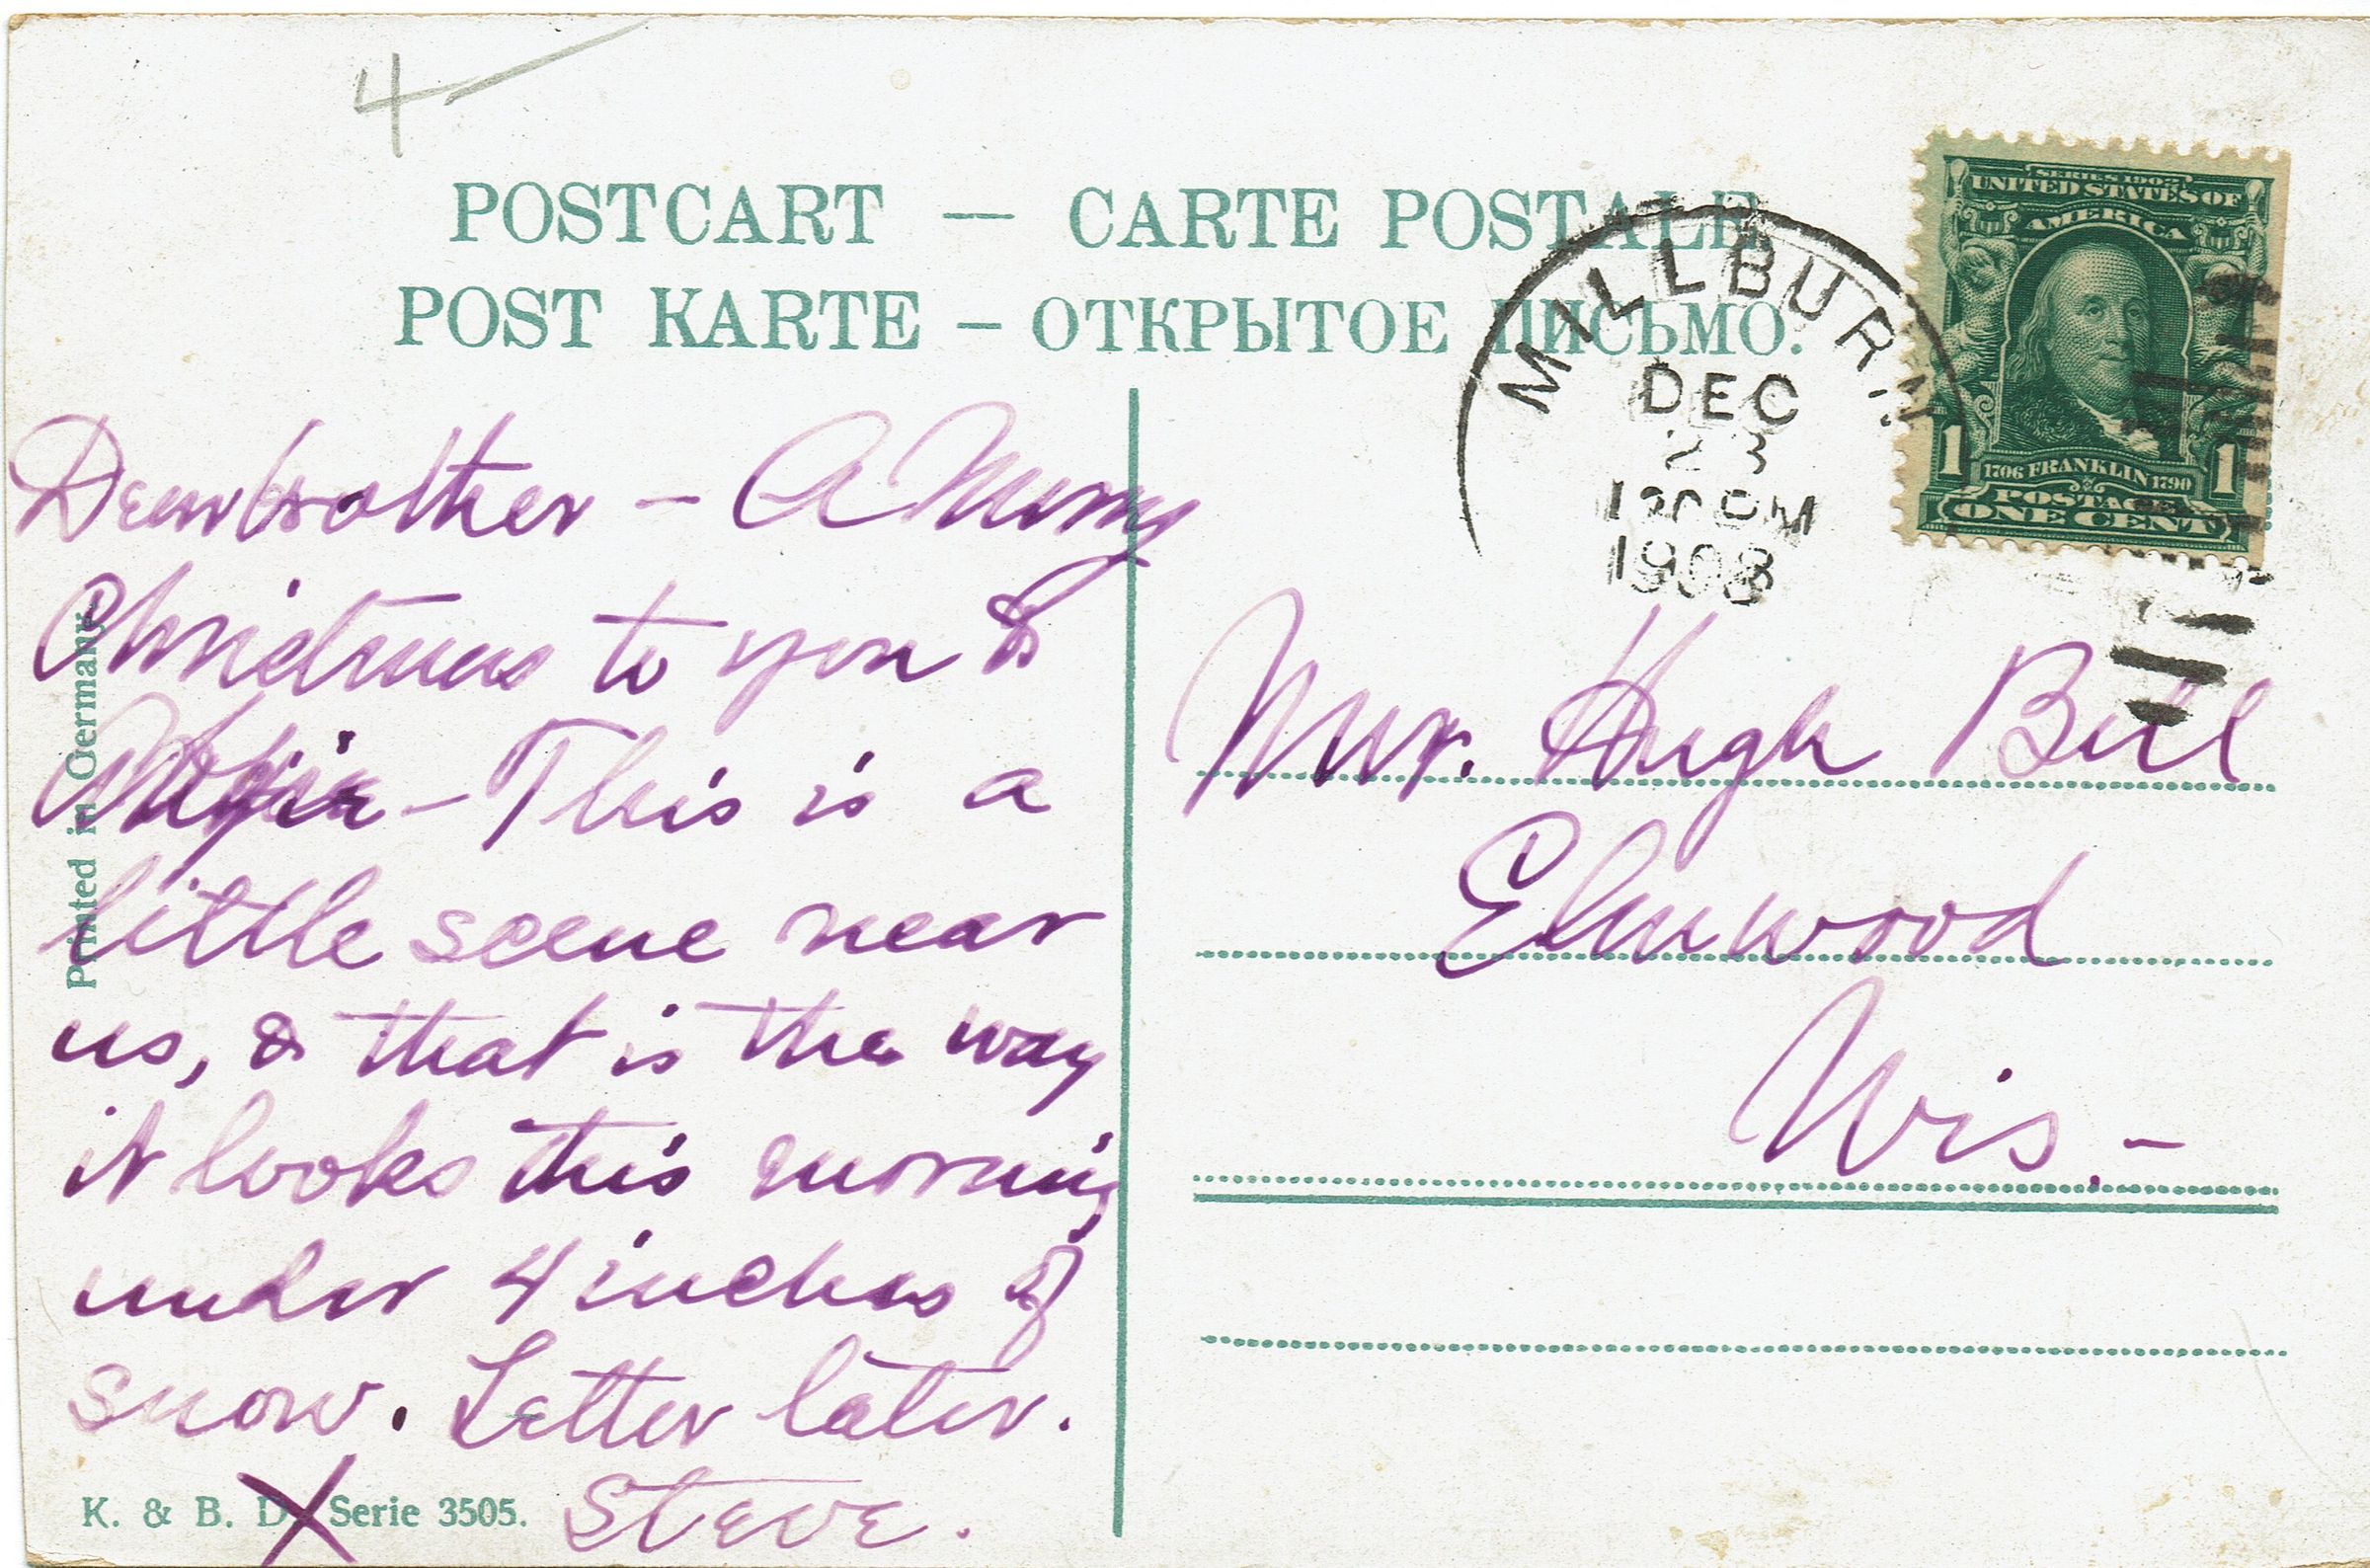 4
POSTCART — CARTE POSTALE
POST KARTE — ОТКРЫТОЕ ПИСЬМО.
MILLBURN
DEC
23
PM
1908
SERIES 1902
UNITED STATES OF
AMERICA
1 1
1706 FRANKLIN 1790
POSTAGE
ONE CENT
Dear brother – A Merry
Christmas to you &
– This is a
little scene near
us, & that is the way
it looks this morning
under 4 inches of
snow. Letter later.
Steve.
X
Mr. Hugh Bell
Elmwood
Wis. –
Printed in Germany
K. & B. D. Serie 3505.